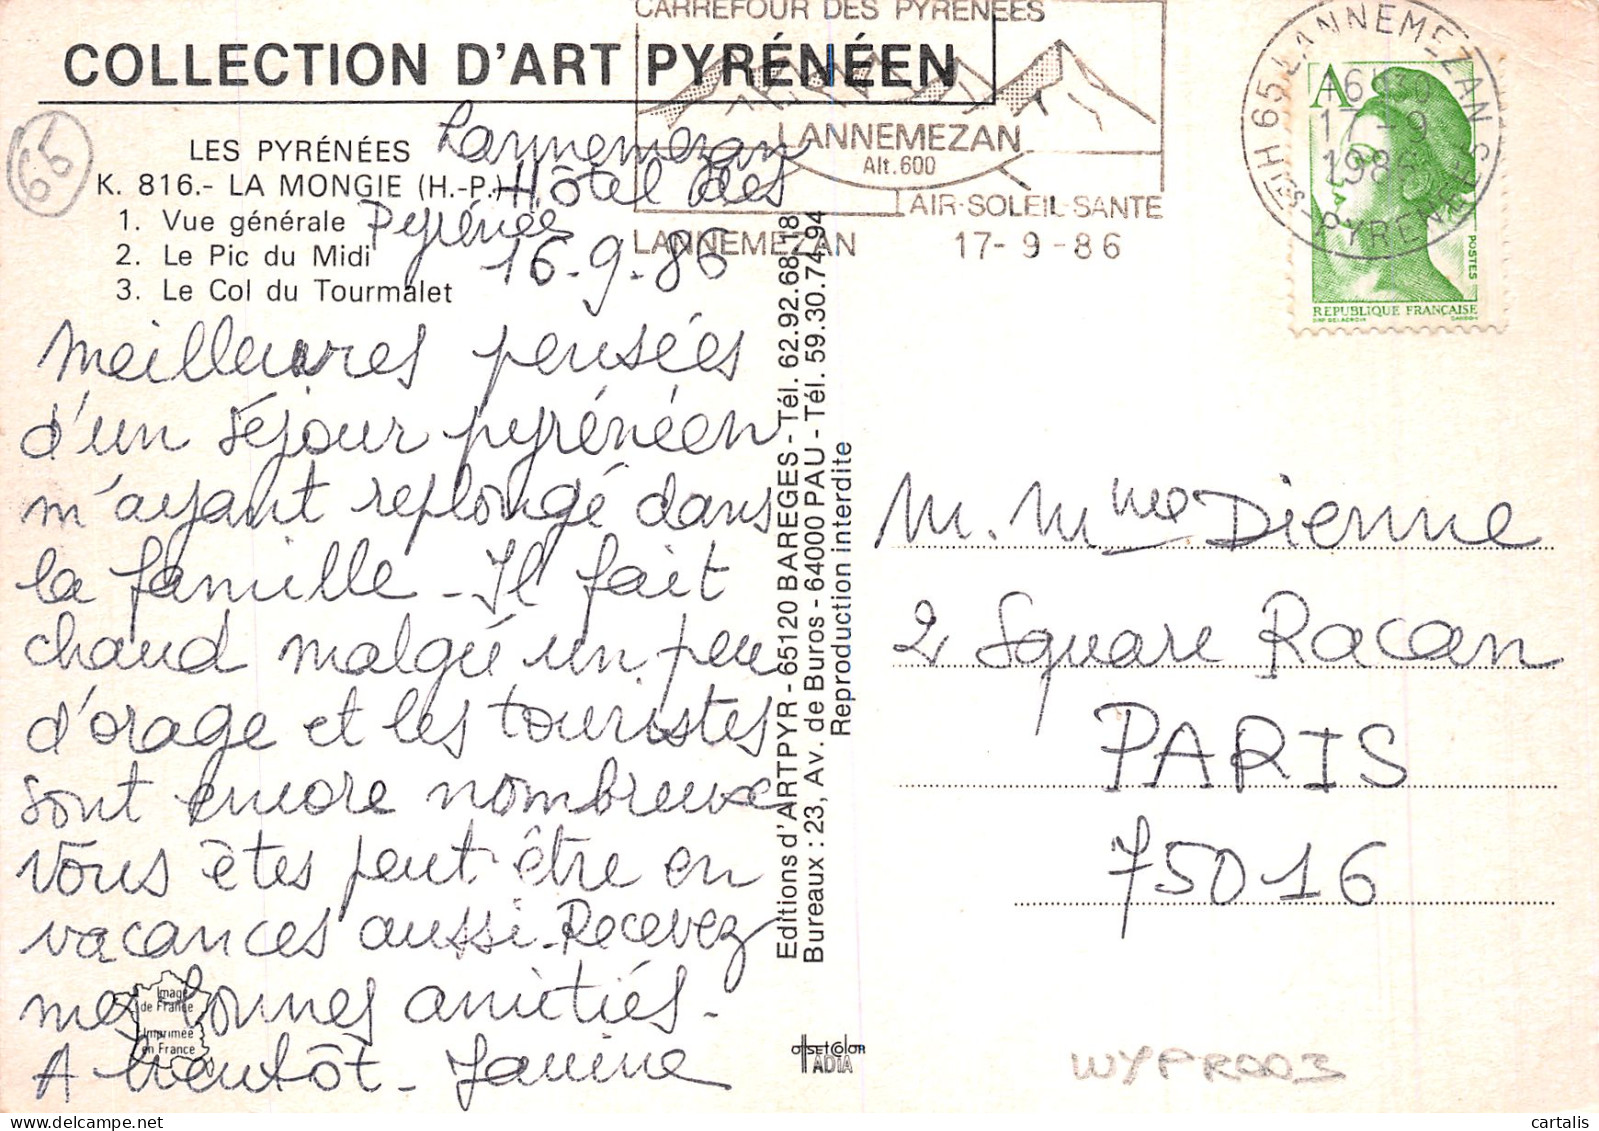 COLLECTION D'ART PYRÉNÉEN
CARREFOUR DES PYRENEES
LANNEMEZAN
Alt. 600
AIR-SOLEIL-SANTE
LANNEMEZAN 17-9-86
65 LANNEMEZAN
16H30
17-9
1986
HTES-PYRENEES
A
POSTES
REPUBLIQUE FRANÇAISE
66
LES PYRÉNÉES
K. 816.- LA MONGIE (H.-P.)
1. Vue générale
2. Le Pic du Midi
3. Le Col du Tourmalet
Lannemezan
Hôtel des
Pyrénées
16.9.86
Meilleures pensées
d'un séjour pyrénéen
m'ayant replongé dans
la famille - Il fait
chaud malgré un peu
d'orage et les touristes
sont encore nombreux
Vous êtes peut être en
vacances aussi - Recevez
mes bonnes amitiés -
A bientôt - Janine
Image
de France
Imprimée
en France
Editions d'ARTPYR - 65120 BAREGES - Tél. 62.92.68.18
Bureaux : 23, Av. de Buros - 64000 PAU - Tél. 59.30.74.94
Reproduction interdite
M. Mme Dienne
2 Square Racan
PARIS
75016
OFFSETCOLOR
ADIA
WYPR003
cartalis delcampe.net